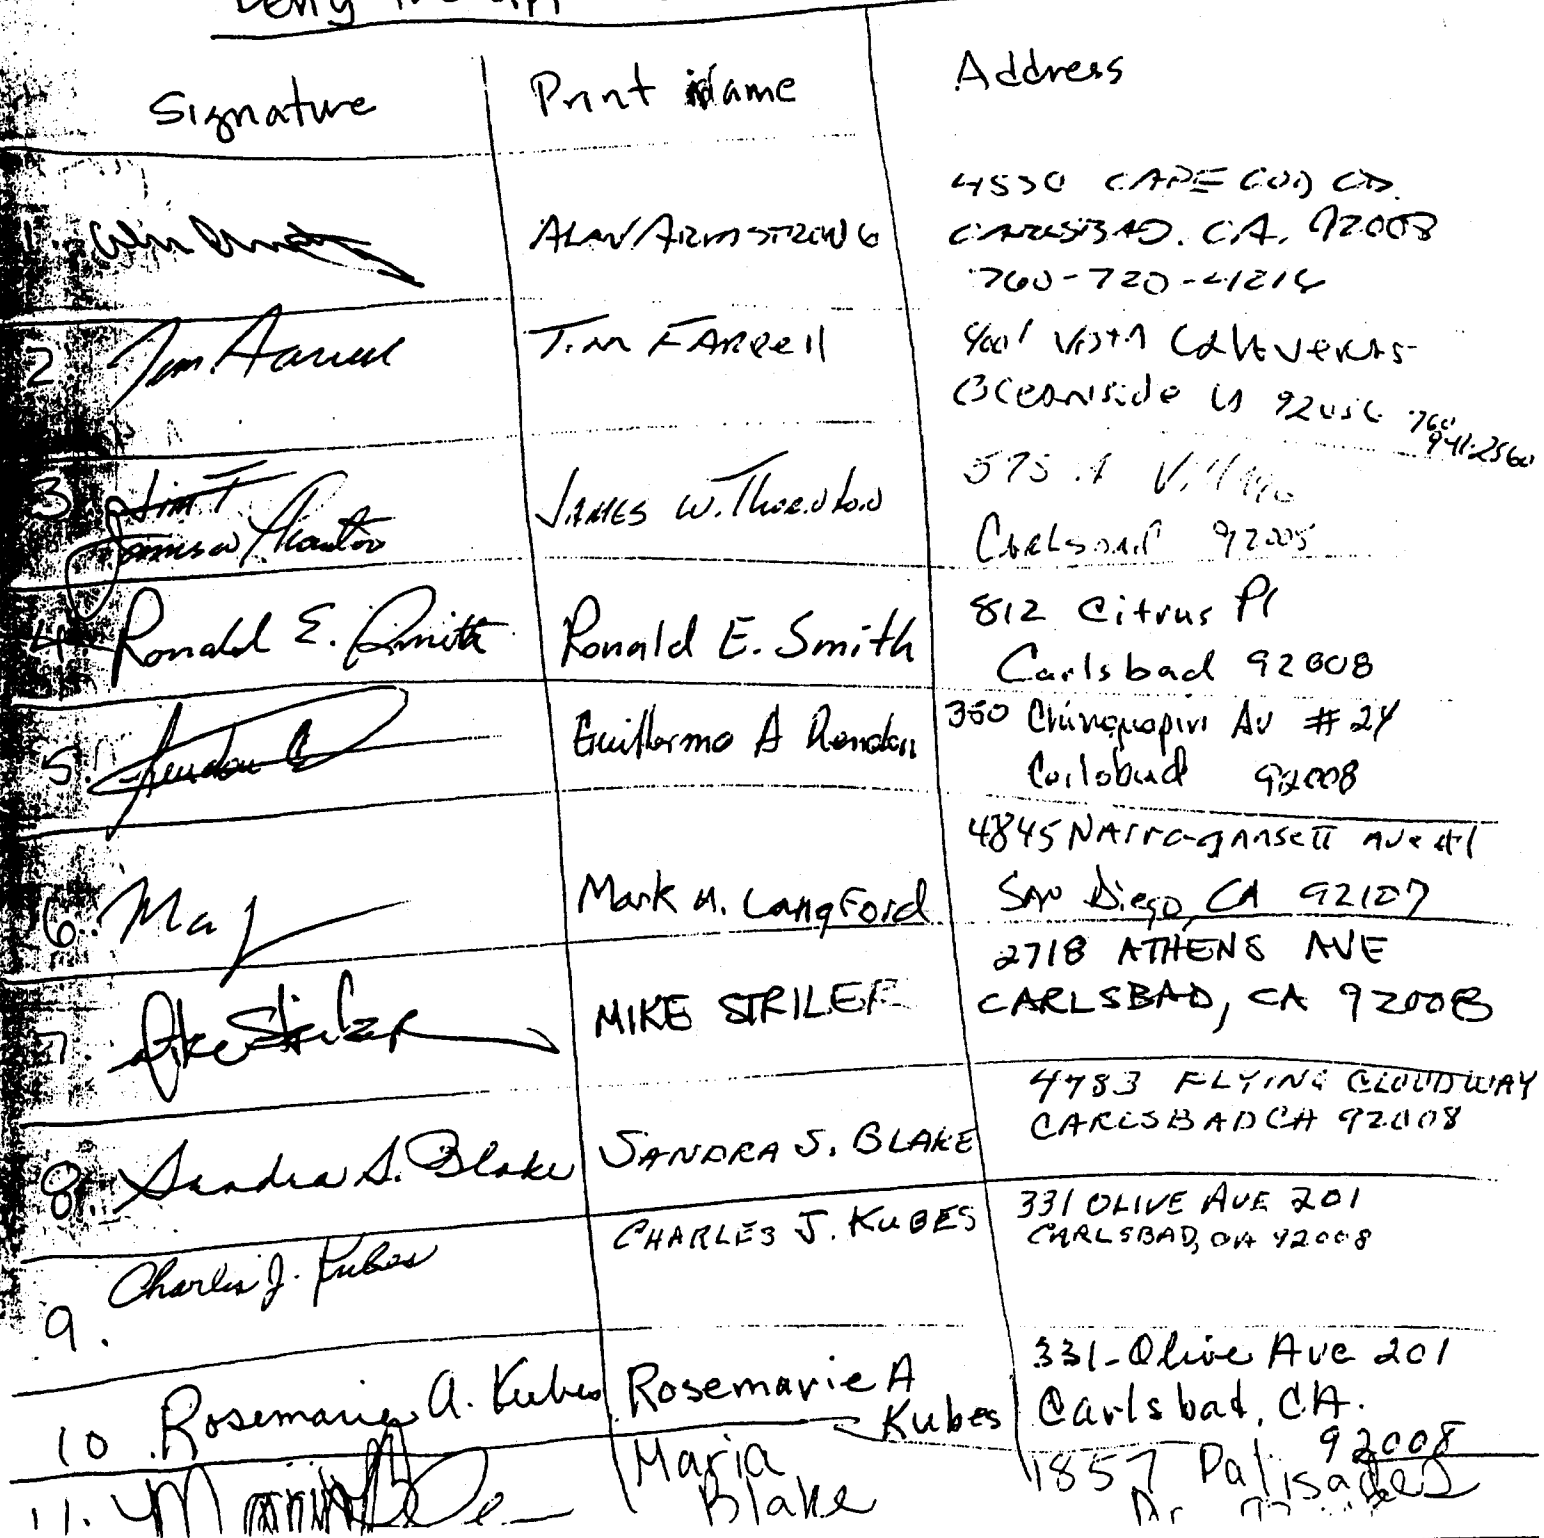 Deny the
Signature Print Name Address
1. ALAN ARMSTRONG 4530 CAPE COD
CARLSBAD. CA. 92008
760-720-4214
2. Tim Farrell Tim FARRell Vista Calaveras
Oceanside 92056 760
941-2560
3 Jim T JAMES W. Thornton 575
James W Thornton Carlsbad 92008
4. Ronald E. Smith Ronald E. Smith 812 Citrus Pl
Carlsbad 92008
5. Guillermo A Rendon 350 Chinquapin Av # 24
Carlsbad 92008
6. Mark M. Langford 4845 Narragansett Ave #1
San Diego, CA 92107
7. Mike Striler MIKE STRILER 2718 ATHENS AVE
CARLSBAD, CA 92008
8. Sandra S. Blake SANDRA S. BLAKE 4783 FLYING CLOUD WAY
CARLSBAD CA 92008
9. Charles J. Kubes CHARLES J. KUBES 331 OLIVE AVE 201
CARLSBAD, CA 92008
10. Rosemarie A. Kubes Rosemarie A Kubes 331-Olive Ave 201
Carlsbad, CA.
92008
11. Maria Blake 1857 Palisades
Dr